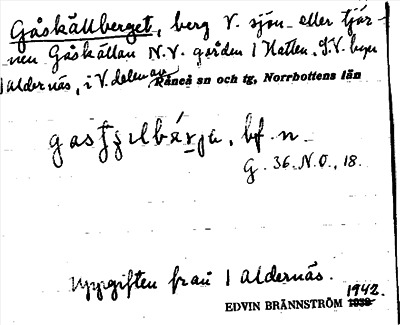 Gåskällberget, berg V. sjön eller tjär-
nen Gåskällan N.V. gården 1 Hatten, S.V. byn
1 Aldernäs, i V. delen av Råneå sn och tg, Norrbottens län
bf. n.
G. 36. N.O., 18.
Uppgiften från 1 Aldernäs.
1942.
EDVIN BRÄNNSTRÖM 1939